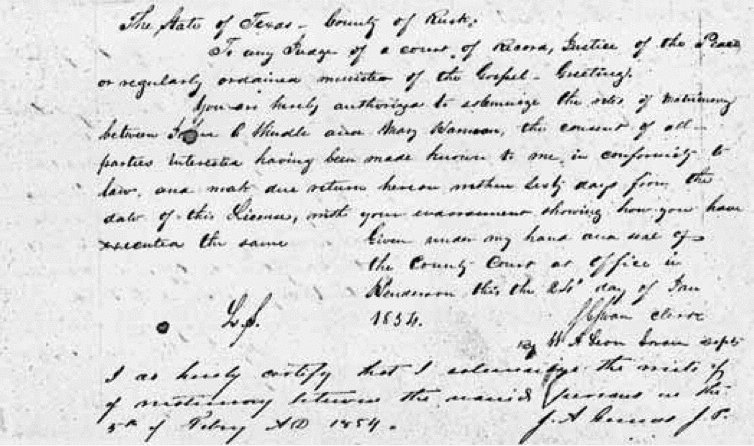 The State of Texas – County of Rusk;
To any Judge of a court of Record, Justice of the Peace
or regularly ordained minister of the Gospel – Greeting.
You are hereby authorized to solemnize the rites of matrimony
between C and Mary, the consent of all
parties interested having been made known to me, in conformity to
law, and make due return hereon within sixty days from the
date of this License, with your endorsement showing how you have
executed the same Given under my hand and seal of
the County Court at office in
Henderson this the 24th day of Jan
L.S. 1854.
Swan clerk
By W A Leon Dept
I do hereby certify that I solemnize the rites of
of matrimony between the named persons on the
5th of Feby AD 1854. J. A. J. P.